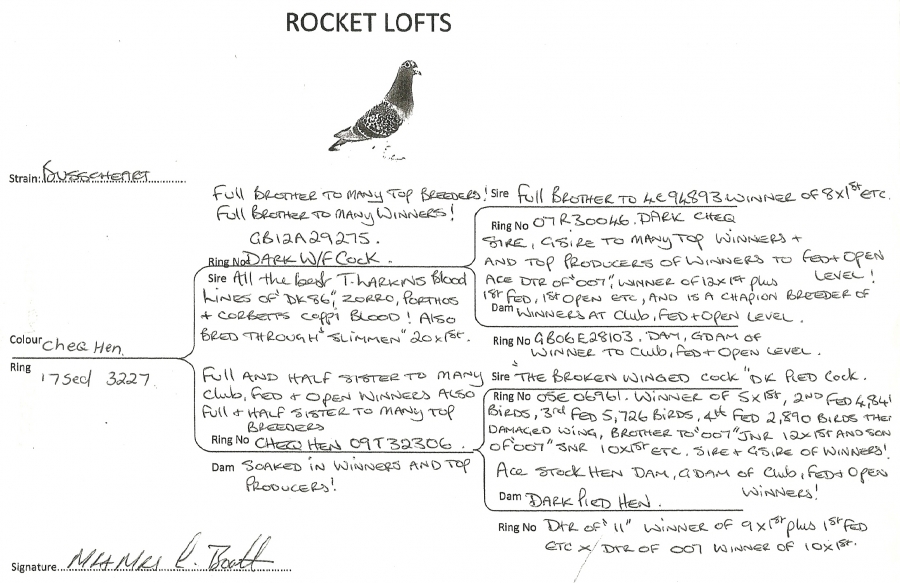 ROCKET LOFTS
Strain: BUSSCHEART
Full BROTHER TO MANY TOP BREEDERS!
Full BROTHER TO MANY WINNERS!
GB12A29275.
Ring No DARK W/F COCK.
Sire All the best T. LARKINS Blood
LINES OF "DK86," ZORRO, PORTHOS
+ CORBETTS COPPI BLOOD! Also
BRED THROUGH "SLIMMEN" 20x1st.
Colour CHEQ HEN.
Ring 17Sed 3227.
FULL AND HALF SISTER TO MANY
Club, FED + OPEN WINNERS ALSO
Full + HALF SISTER TO MANY TOP
BREEDERS
Ring No CHEQ HEN 09T32306.
Dam SOAKED IN WINNERS AND TOP
PRODUCERS!
Sire Full BROTHER TO 4C94893 WINNER OF 8x1st ETC.
Ring No 07R30046. DARK CHEQ
SIRE, GSIRE TO MANY TOP WINNERS +
AND TOP PRODUCERS OF WINNERS TO FED + OPEN
LEVEL!
ACE DTR OF "007", WINNER OF 12x1st plus
1st FED, 1st OPEN ETC, AND IS A CHAPION BREEDER OF
Dam WINNERS AT Club, FED + OPEN LEVEL.
Ring No GB06E28103. DAM, GDAM OF
WINNER TO Club, FED + OPEN LEVEL.
Sire "THE BROKEN WINGED COCK" DK PIED COCK.
Ring No 05E 06961. WINNER OF 5x1st, 2ND FED 4,841
BIRDS, 3rd FED 5,726 BIRDS, 4th FED 2,890 BIRDS THEN
DAMAGED WING, BROTHER TO "007" JNR 12x1st AND SON
OF "007" SNR 10x1st ETC. SIRE + GSIRE OF WINNERS!
ACE STOCK HEN DAM, GDAM OF Club, FED + OPEN
WINNERS!
Dam DARK PIED HEN.
Ring No DTR OF "11" WINNER OF 9x1st plus 1st FED
ETC X DTR OF 007 WINNER OF 10x1st.
Signature